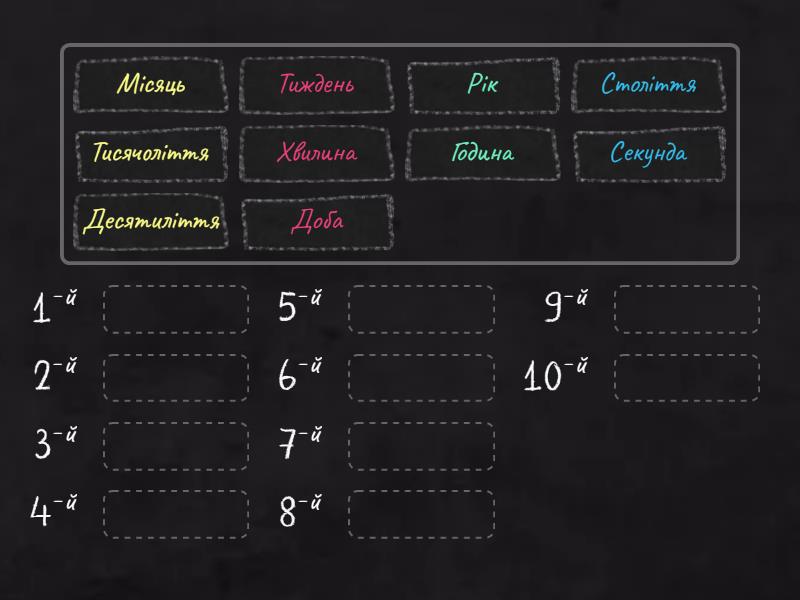 Місяць Тиждень Рік Століття
Тисячоліття Хвилина Година Секунда
Десятиліття Доба
1-й 5-й 9-й
2-й 6-й 10-й
3-й 7-й
4-й 8-й